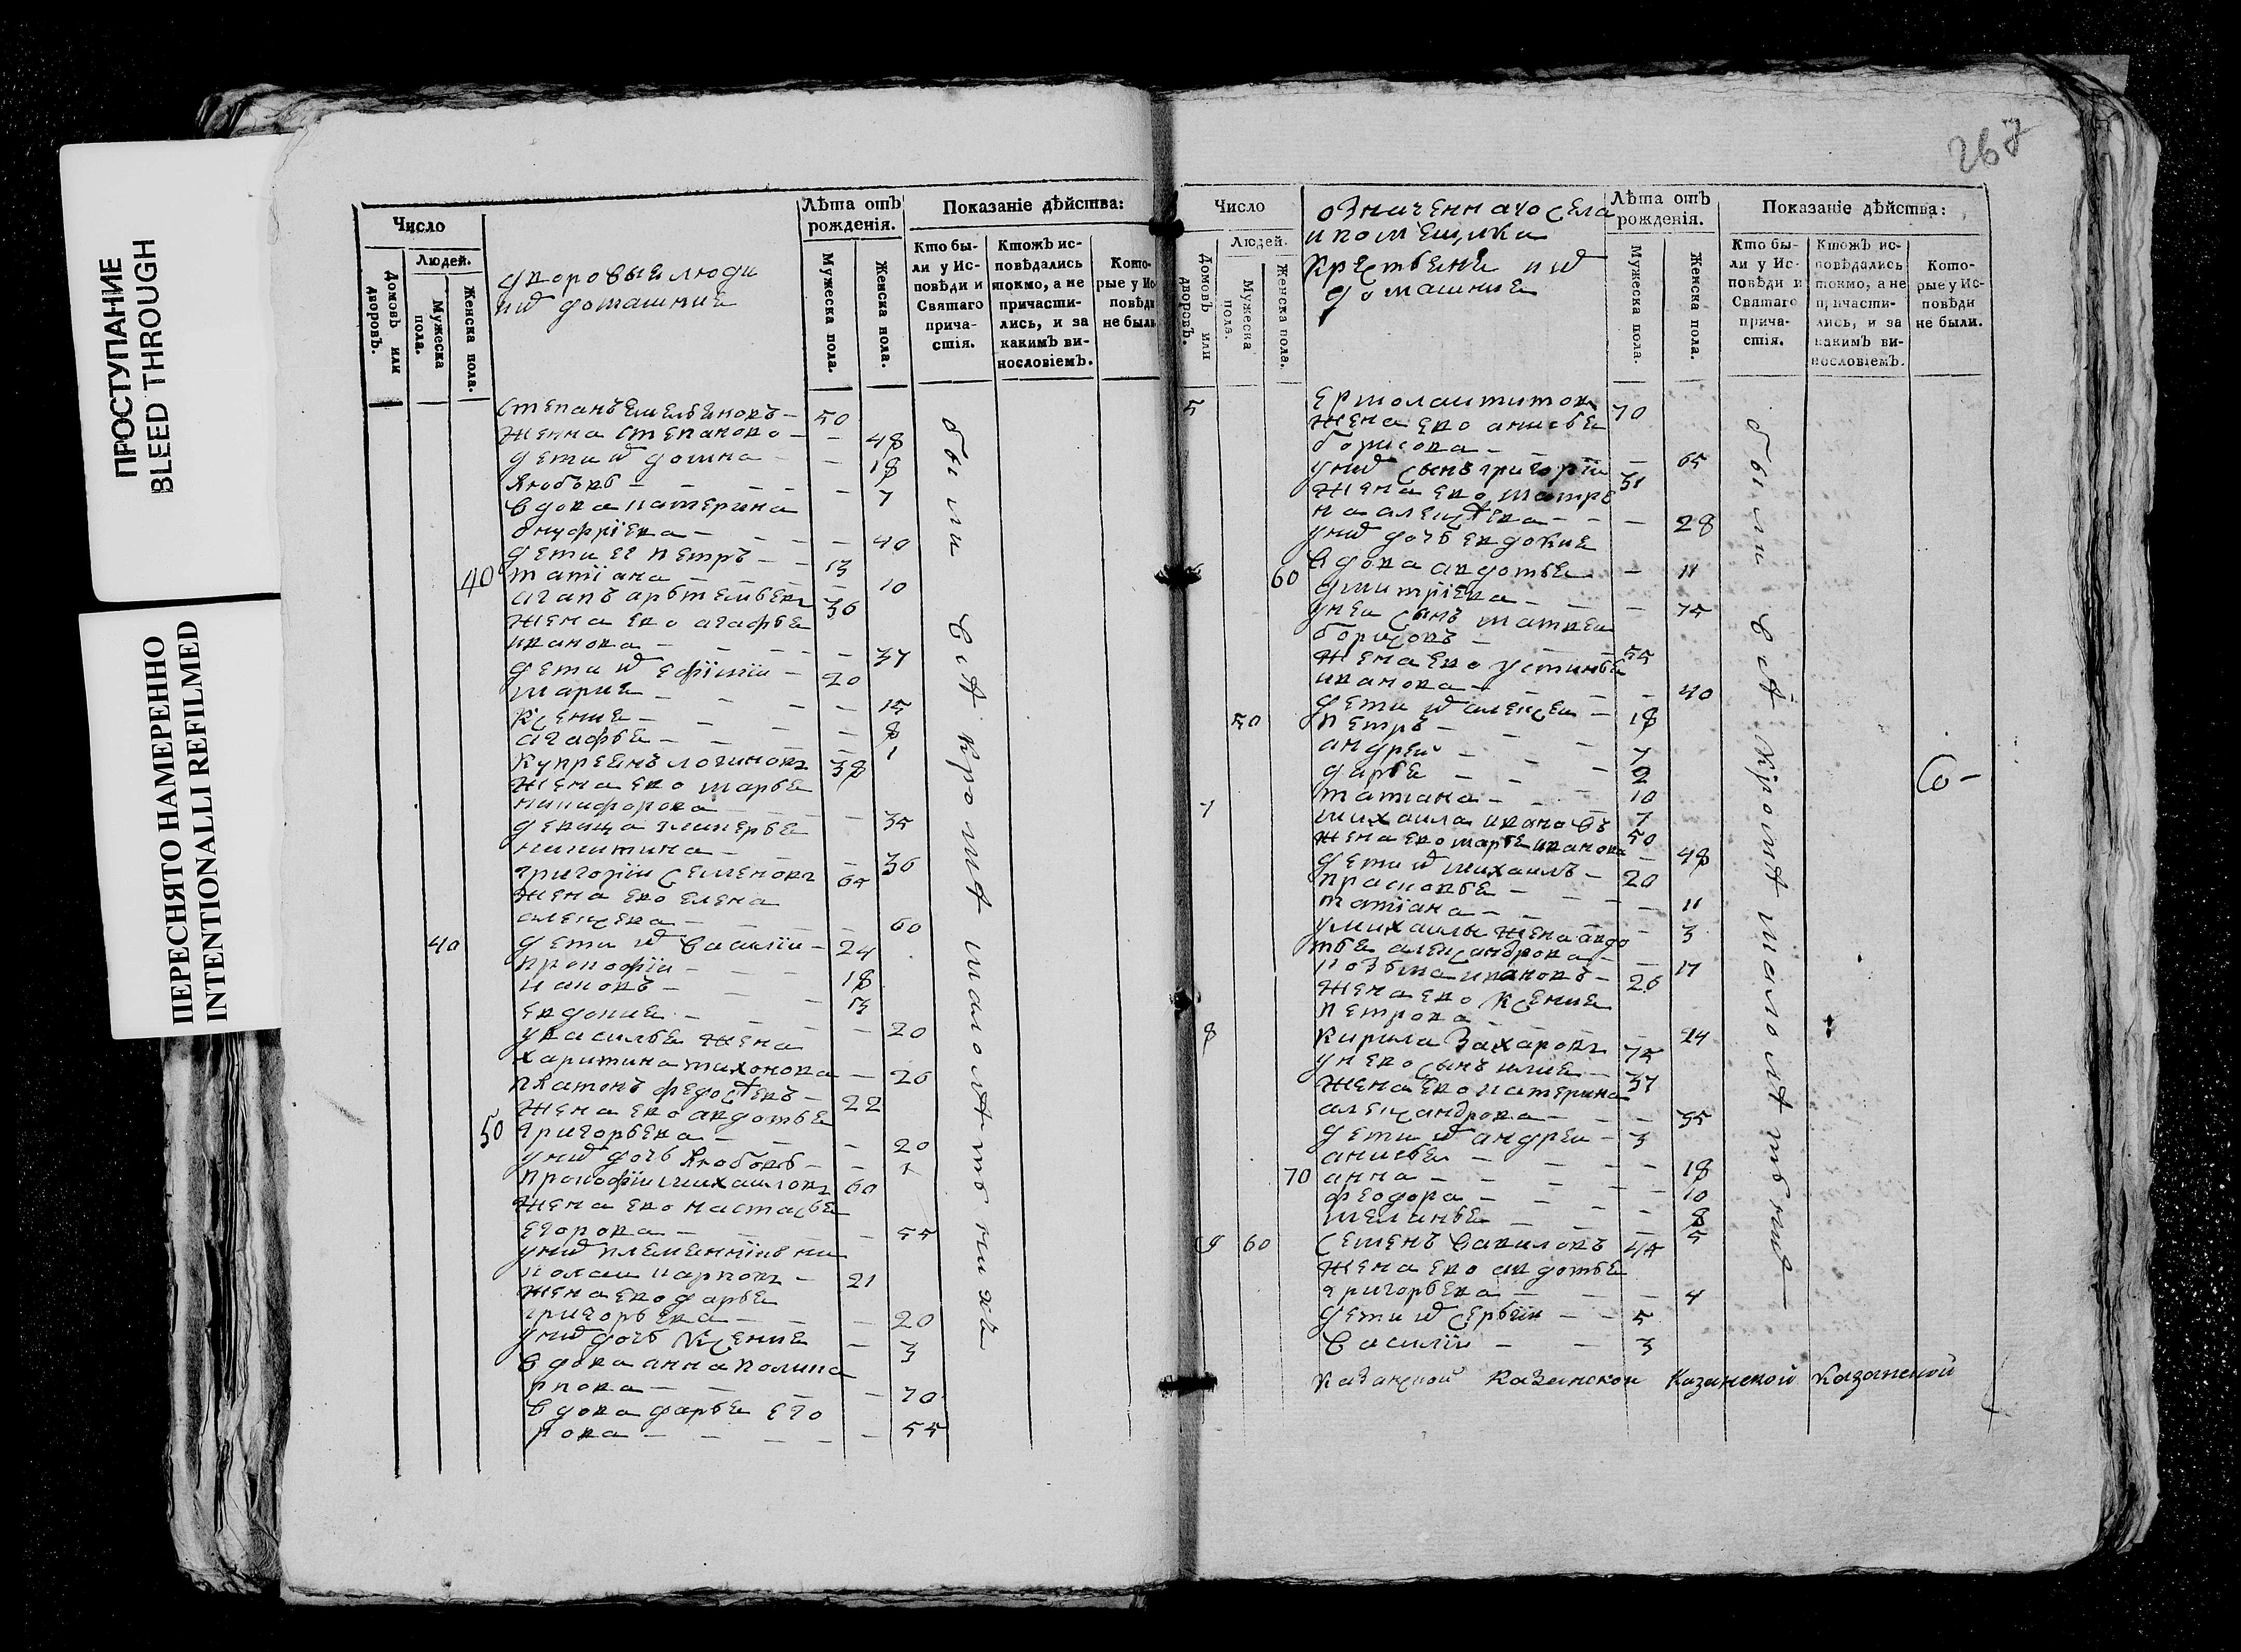 ПРОСТУПАНИЕ
BLEED THROUGH
ПЕРЕСНЯТО НАМЕРЕННО
INTENTIONALLI REFILMED
Число
Людей.
Домовъ или дворовъ.
Мужеска пола.
Женска пола.
дворовые люди
ихъ домашние
Лѣта отъ рожденія.
Мужеска пола.
Женска пола.
Показаніе дѣйства:
Кто бы-
ли у Ис-
повѣди и
Святаго
прича-
стія.
Ктожъ ис-
повѣдались
токмо, а не
причасти-
лись, и за
какимъ ви-
нословіемъ.
Кото-
рые у Ис-
повѣди
не были
степанъ емельеновъ - 50
жена степанова - - 48
дети домна - - 18
любовь - - - 7
вдова катерина
онуфрїева - - - 40
дети ее петръ - - 13
40 татїана - - - 10
агапъ артемьевъ 36
жена ево агафье
иванова - - - 37
дети ефїмїи - 20
марие - - - 15
ксение - - - 8
агафье - - - 1
купреенъ логиновъ 38
жена ево марье
никифорова - - 35
девица гликерье
никитина - - 36
григорїи семеновъ 65
жена ево елена
алексева - - 60
40 дети василїи - 24
прокофїи - - 18
иаковъ - - 13
евдокие - - - 20
у василье жена
харитина тихонова - 26
платонъ федосѣевъ - 22
жена ево авдотье
50 григорьева - - 20
дочь любовь - - 1
прокофїи михаиловъ 60
жена ево настасье
егорова - - - 55
племенникъ ни
колаи карповъ - 21
жена ево дарье
григорьева - - 20
дочь ксение - 3
вдова анна поlика
рпова - - - 70
вдова дарье его
рова - - - 55
были всѣ кромѣ малолѣтныхъ
267
Число
Людей.
Домовъ или дворовъ.
Мужеска пола.
Женска пола.
означеннаго села
и помещика
крестьене
домашние
Лѣта отъ рожденія.
Мужеска пола.
Женска пола.
Показаніе дѣйства:
Кто бы-
ли у Ис-
повѣди и
Святаго
прича-
стія.
Ктожъ ис-
повѣдались
токмо, а не
причасти-
лись, и за
какимъ ви-
нословіемъ.
Кото-
рые у Ис-
повѣди
не были.
5 ермолаи титовъ 70
жена ево анисье
борисова - - 65
сынъ григорїи 31
жена ево матре
на алексѣева - - 28
дочь евдокие - 11
6 60 вдова авдотье
дмитрїева - - 75
у нея сынъ матвеи
борисовъ - - 55
жена ево устинье
иванова - - 40
дети алексеи - 18
50 петръ - - 7
андреи - - 2
дарье - - 10
татиана - - 7
7 михаила ивановъ 50
жена ево марье иванова 48
дети михаилъ - 20
прасковье - - 11
татїана - - - 3
у михаилы жена авдо
тье александрова - 17
козьма ивановъ - 26
жена ево ксение
петрова - - 24
8 кирила захаровъ 75
у нево сынъ илие - 37
жена ево катерина
александрова - - 35
дети андреи - 3
анисье - - - 18
70 анна - - - 10
феодора - - - 8
меланье - - - 5
9 60 семенъ вавиловъ 45
жена ево авдотье
григорьева - - 4
дети сергѣи - - 5
василїи - - 3
казанской казанской казанской казанской
были всѣ кромѣ малолѣтныхъ